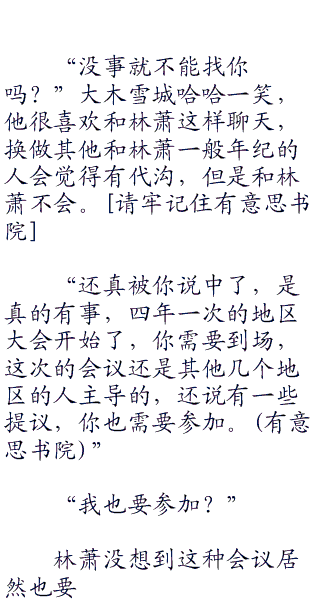 “没事就不能找你
吗？”大木雪城哈哈一笑，
他很喜欢和林萧这样聊天，
换做其他和林萧一般年纪的
人会觉得有代沟，但是和林
萧不会。[请牢记住有意思书
院]
“还真被你说中了，是
真的有事，四年一次的地区
大会开始了，你需要到场，
这次的会议还是其他几个地
区的人主导的，还说有一些
提议，你也需要参加。(有意
思书院)”
“我也要参加？”
林萧没想到这种会议居
然也要